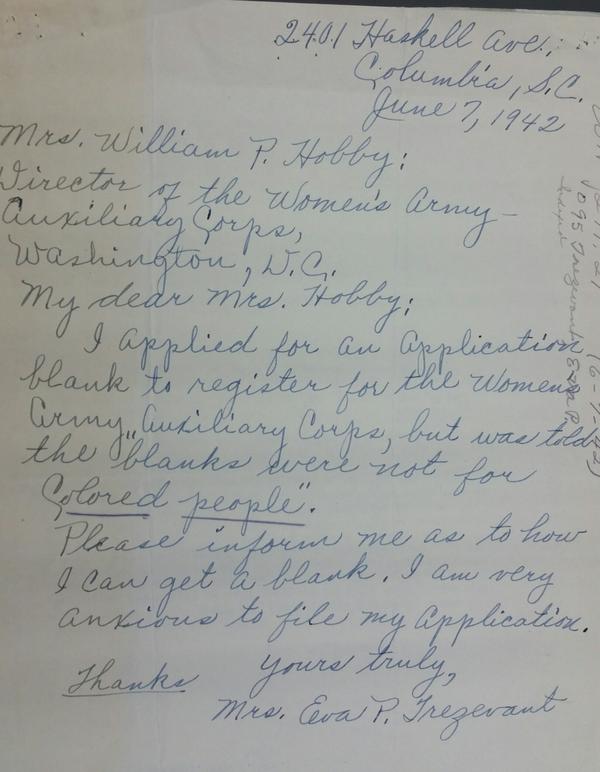 2401 Haskell Ave.,
Columbia, S.C.
June 7, 1942
Mrs. William P. Hobby:
Director of the Women's Army-
Auxiliary Corps,
Washington, D.C.
My dear Mrs. Hobby:
I applied for an Application
blank to register for the Womens
Army Auxiliary Corps, but was told
the "blanks were not for
Colored people".
Please inform me as to how
I can get a blank. I am very
anxious to file my Application.
Thanks Yours truly,
Mrs. Eva P. Trezevant
(6-7-42)